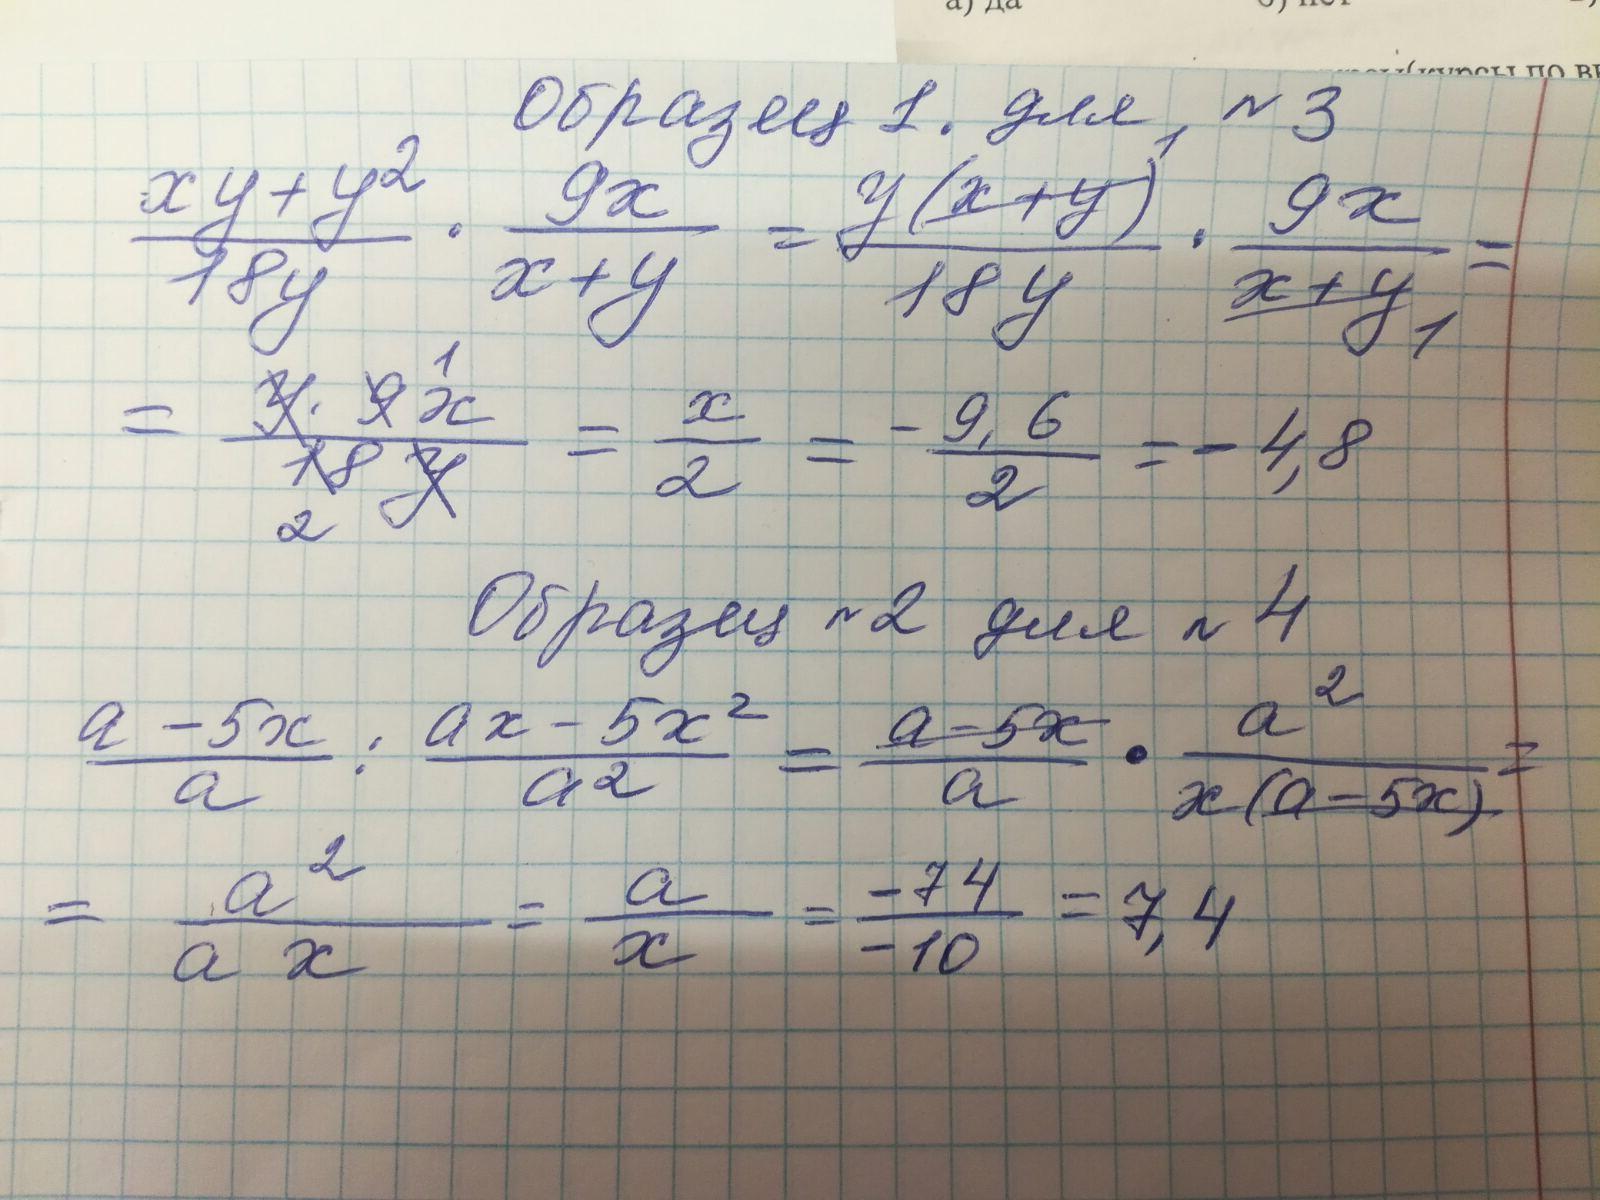 а) да б) нет
курсы по вы
Образец 1. для №3
xy+y² / 18y · 9x / x+y = y(x+y)¹ / 18y · 9x / x+y₁ =
= y · 9¹x / 18₂ y = x / 2 = -9,6 / 2 = -4,8
Образец №2 для №4
a-5x / a : ax-5x² / a² = a-5x / a · a² / x(a-5x) =
= a² / a x = a / x = -74 / -10 = 7,4